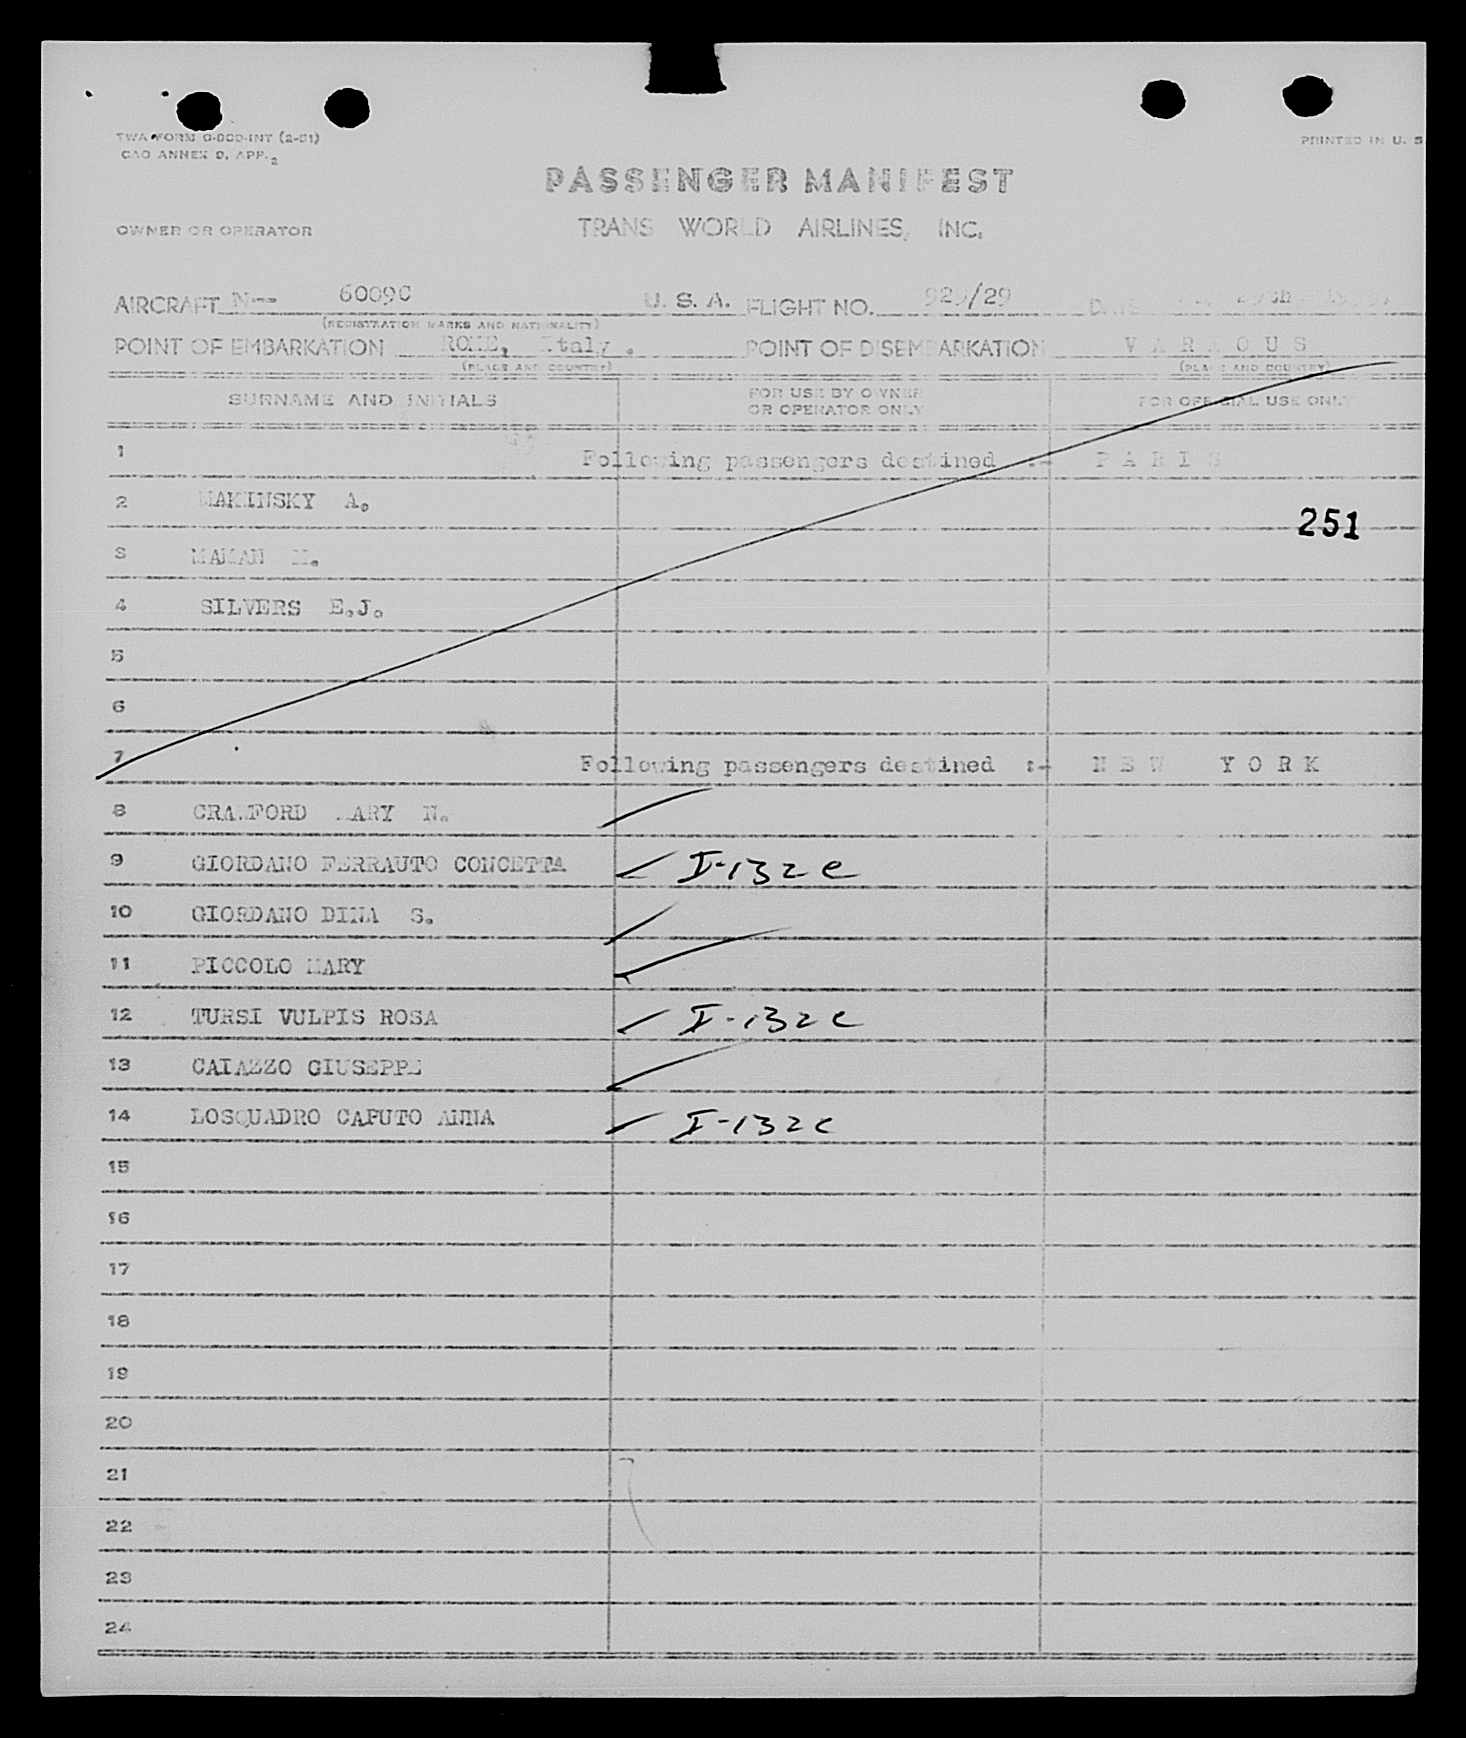 TWA FORM (2-51)
CAO ANNEX 9, APP. 2
PRINTED IN U. S
PASSENGER MANIFEST
OWNER OR OPERATOR TRANS WORLD AIRLINES, INC.
AIRCRAFT N-- 6009C U. S. A. FLIGHT NO. /29
(REGISTRATION MARKS AND NATIONALITY)
POINT OF EMBARKATION ROME, Italy. POINT OF DISEMBARKATION V A R I O U S
(PLACE AND COUNTRY) (PLACE AND COUNTRY)
SURNAME AND INITIALS FOR USE BY OWNER OR OPERATOR ONLY FOR OFFICIAL USE ONLY
1 Following passengers destined :- P A R I S
2 MAKINSKY A.
251
3 MAMAN M.
4 SILVERS E.J.
5
6
7 Following passengers destined :- N E W Y O R K
8 CRAWFORD MARY N.
9 GIORDANO FERRAUTO CONCETTA I-132c
10 GIORDANO DINA S.
11 PICCOLO MARY
12 TURSI VULPIS ROSA I-132c
13 CAIAZZO GIUSEPPE
14 LOSQUADRO CAPUTO ANNA I-132c
15
16
17
18
19
20
21
22
23
24